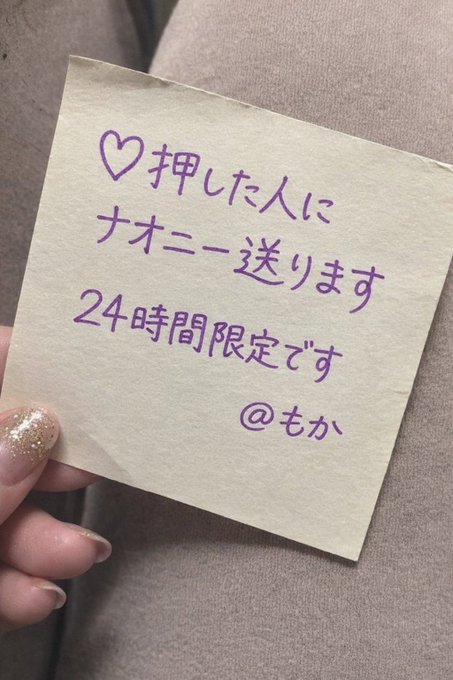 ♡押した人に
ナオニー送ります
24時間限定です
@もか